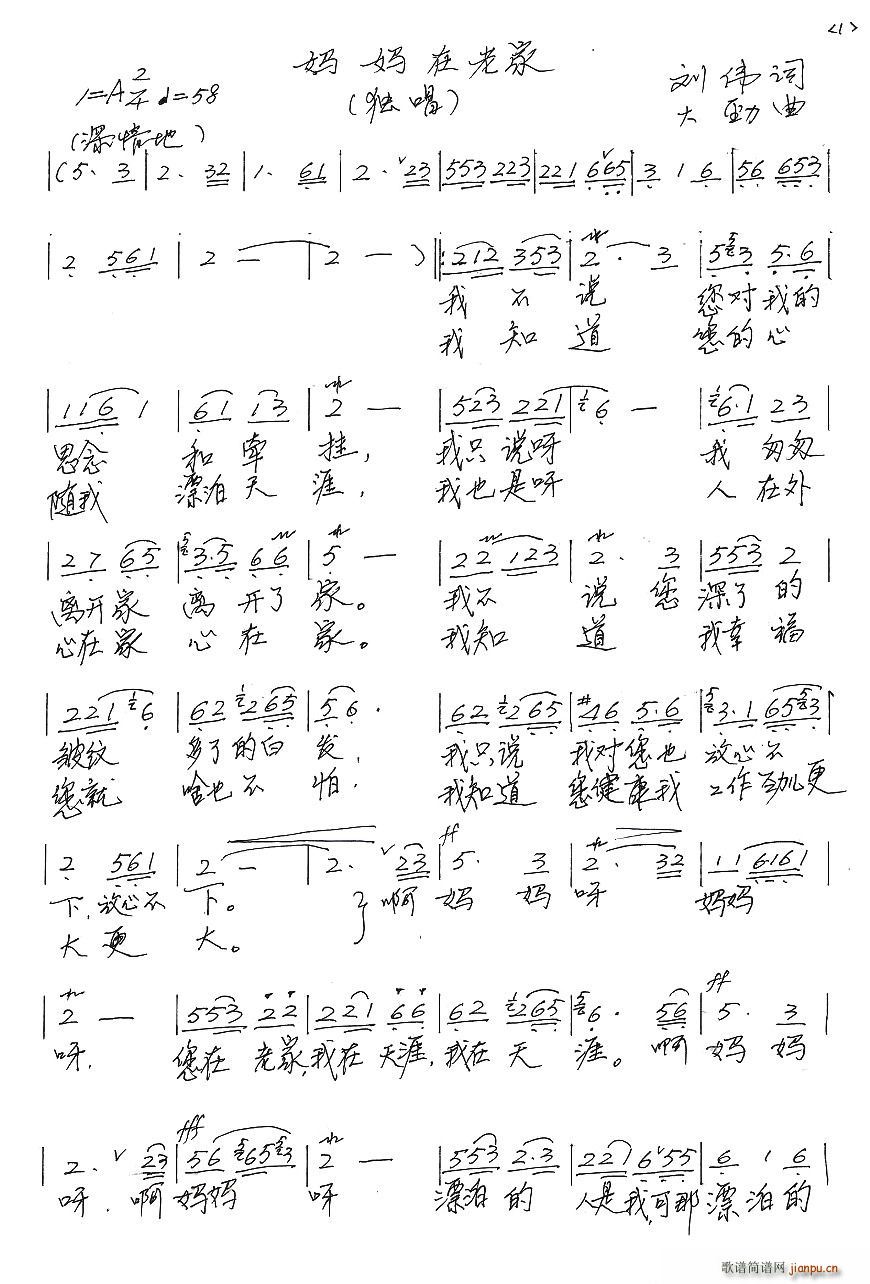 <1>
妈妈在老家
1=A 2/4 ♩=58
(独唱)
刘伟词
大劲曲
(深情地)
|(5· 3|2· 32|1· 61|2· ∨23|553 223|221 6∨65|3 1 6|56 653|
|2 561|2 —|2 —)‖:212 353|2· 3|5 3 5·6|
我不说 您对我的
我知道 您的心
|116 1|61 13|2 —|523 221|6 —|6·1 23|
思念 和牵挂, 我只说呀 我匆匆
随我 漂泊天涯, 我也是呀 人在外
|27 65|3·5 66|5 —|22 123|2· 3|553 2|
离开家 离开了家。 我不说您深了的
心在家 心在家。 我知道 我幸福
|221 6|62 265|5 6·|62 265|#46 5·6|3·1 653|
皱纹 多了的白发, 我只说 我对您也放心不
您就 啥也不怕, 我知道 您健康我工作劲儿更
|2 561|2 —|2· ∨23|ff 5· 3|2· 32|11 6161|
下,放心不下。 啊妈妈呀 妈妈
大更大。
|2 —|553 22|221 66|62 265|6· 56|ff 5· 3|
呀, 您在老家,我在天涯,我在天涯。啊妈妈
|2· ∨23|fff 56 6553|2 —|553 2·3|221 6∨55|6 1 6|
呀,啊妈妈呀 漂泊的人是我,可那漂泊的
歌谱简谱网
jianpu.cn